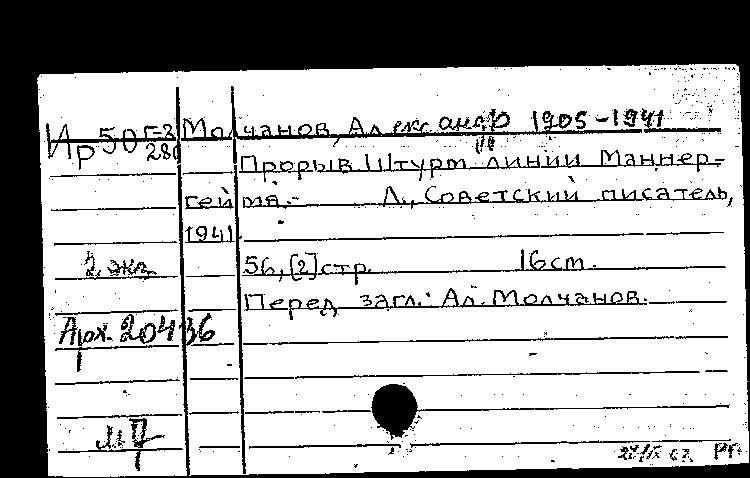 Ир 50 Г-3/280 Молчанов, Александр 1905-1941
Прорыв. Штурм линии Маннер-
гейма.- Л., Советский писатель,
1941.
2 экз. 56, [2] стр. 16 cm.
Перед загл.: Ал. Молчанов.
Арх. 20436